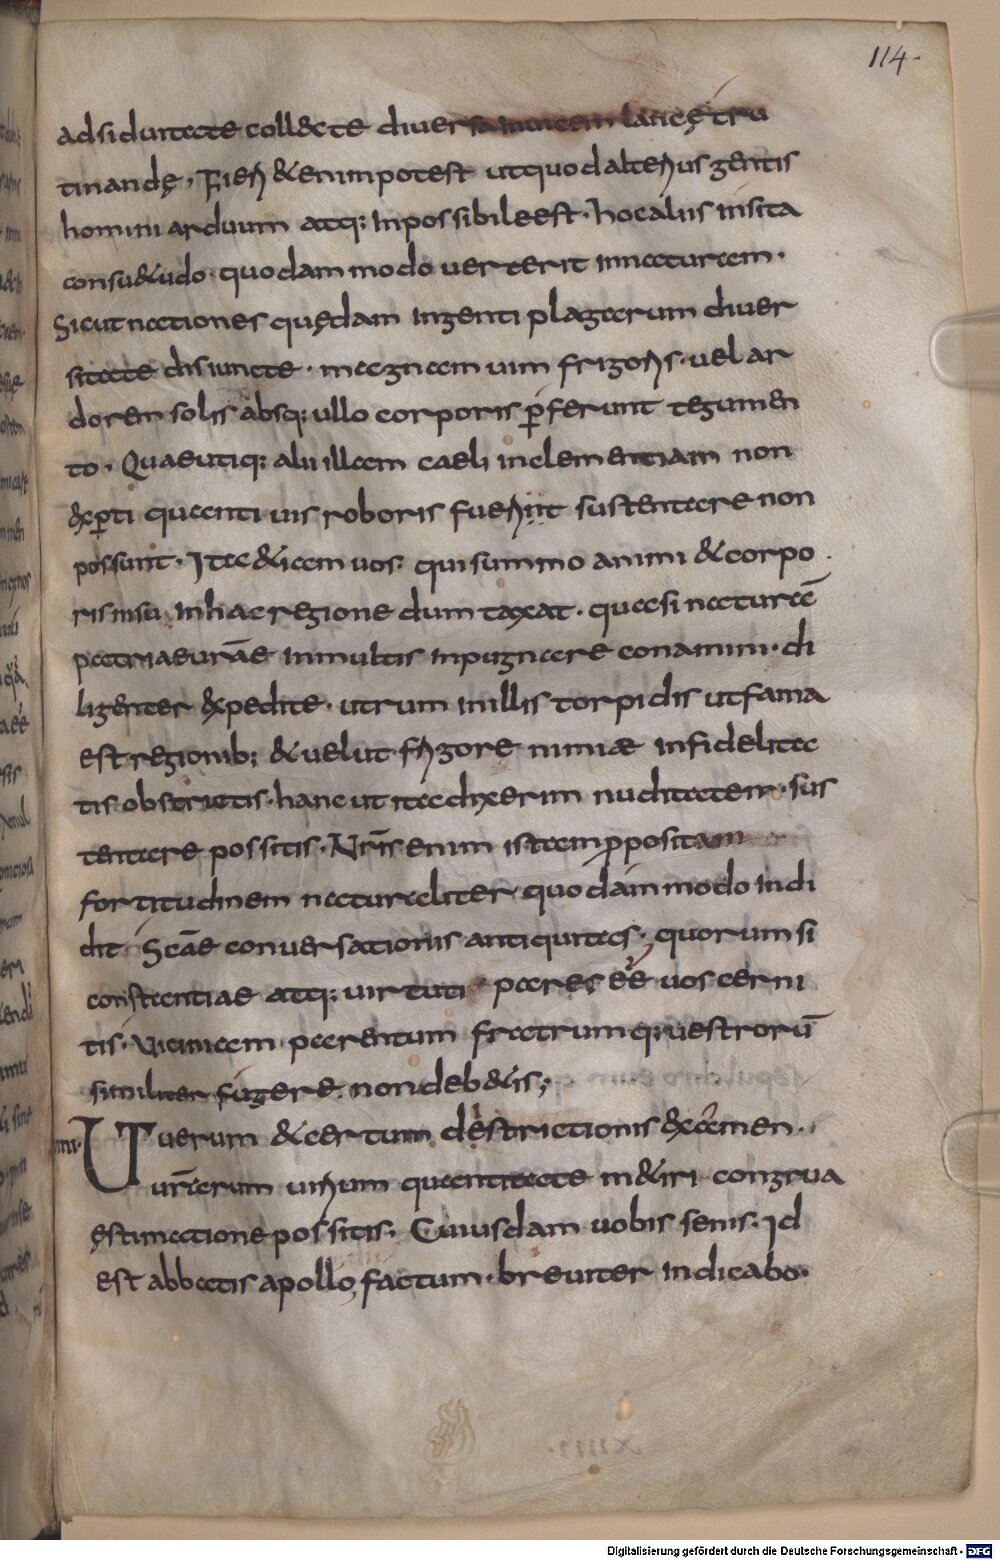 114.
adsiduitate collecte diuersa inuicem lance tru
tinandę, Fieri &enim potest utquod alterius gentis
homini arduum atq; Inpossibile est. hoc aliis insita
consu&udo quodammodo uerterit innaturam.
Sicut nationes quędam Ingenti plagarum diuer
sitate disiuncte. magnam uim frigoris. uel ar
dorem solis absq; ullo corporis p̲ferunt tegumen
to. Quaeutiq; alii illam caeli inclementiam non
exp̲ti quanti uis roboris fuerint sustentare non
possunt. Ita &iam uos. qui summo animi & corpo
ris nisu Inhac regione dum taxat. quasi naturā
patriae urāe Inmultis Inpugnare conamini. di
ligenter expedite. utrum Inillis torpidis utfama
est regionib; & uelut frigore nimiæ Infidelita
tis obstrictis. hanc ut ita dixerim nuditatem. sus
tentare possitis. Nr̄is enim istam p̲positam
fortitudinem naturaliter quodammodo Indi
dit Scāe conuersationis antiquitas. quorum si
constantiae atq; uirtuti pares ēe uos cerni
tis. Uiciniam parentum fratrumq; uestrorū
similiter fugere non deb&is;
IIII. UT uerum & certum districtionis examen
urārum uirium quantitate m&iri congrua
ęstimatione possitis. Cuiusdam uobis senis. Id
est abbatis apollo, factum. breuiter Indicabo.
XIIII.
Digitalisierung gefördert durch die Deutsche Forschungsgemeinschaft - DFG